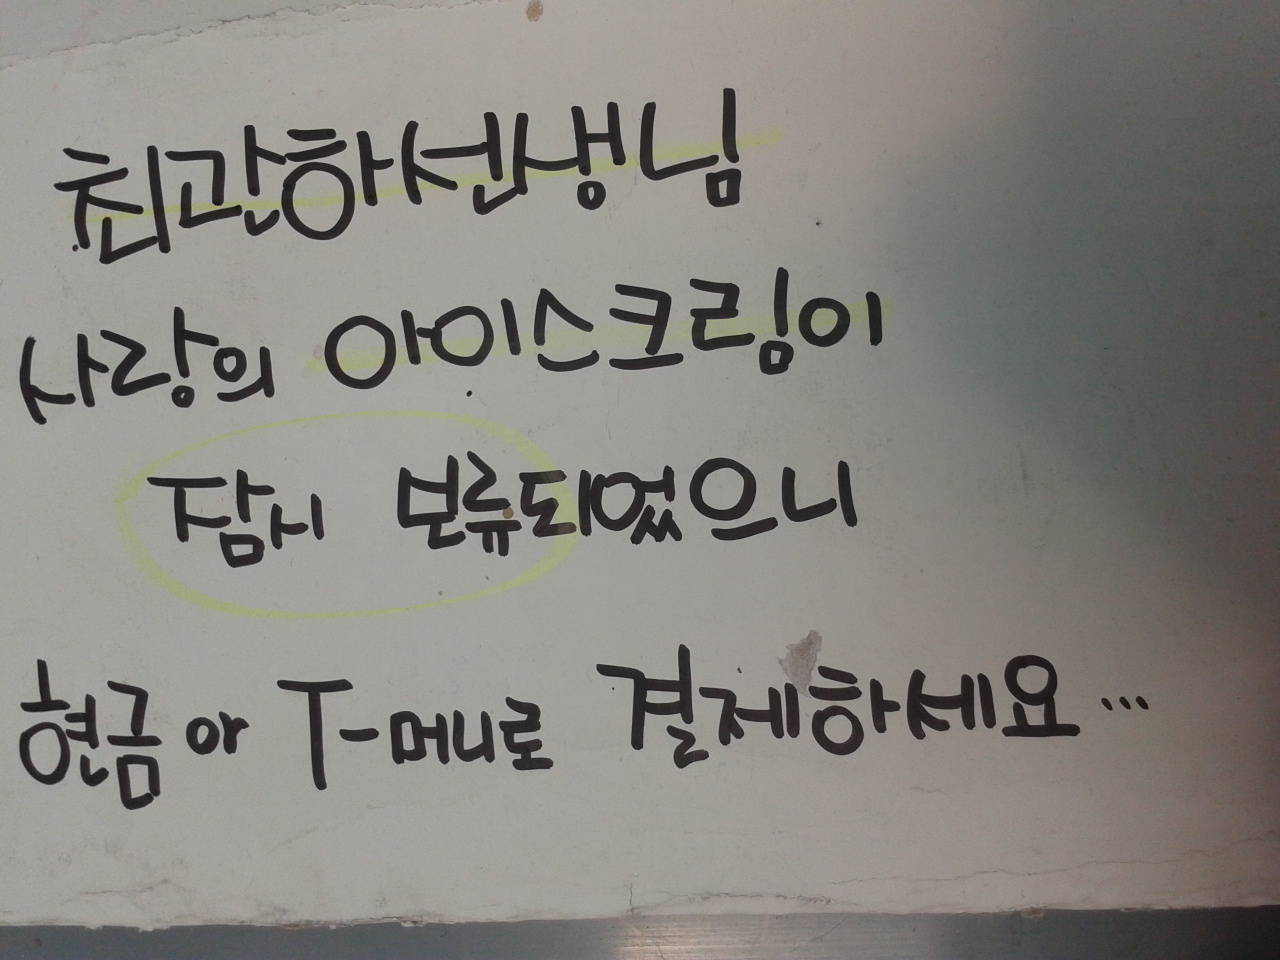 최관하선생님
사랑의 아이스크림이
잠시 보류되었으니
현금 or T-머니로 결제하세요...